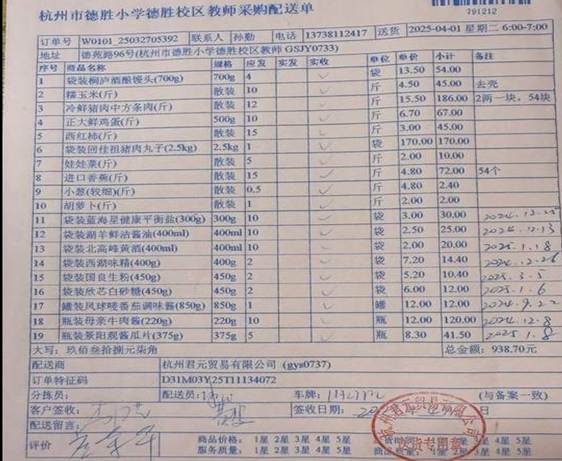 杭州市德胜小学德胜校区教师采购配送单
791212
订单号 W0101_25032705392 联系人 孙勤 电话 13738112417 送货 2025-04-01 星期二 6:00-7:00
地址 德苑路96号(杭州市德胜小学德胜校区教师 GSJY0733)
序号 商品名称 规格 应发 实发 实收 单位 单价 小计 备注
1 袋装桐庐酒酿馒头(700g) 700g 4 袋 13.50 54.00
2 糯玉米(斤) 散装 10 斤 4.50 45.00 去壳
3 冷鲜猪肉中方条肉(斤) 散装 12 斤 15.50 186.00 2两一块，54块
4 正大鲜鸡蛋(斤) 500g 10 斤 6.70 67.00
5 西红柿(斤) 散装 15 斤 3.00 45.00
6 袋装回佳祖猪肉丸子(2.5kg) 2.5kg 1 袋 170.00 170.00
7 娃娃菜(斤) 散装 5 斤 2.00 10.00
8 进口香蕉(斤) 散装 15 斤 4.80 72.00 54个
9 小葱(较细)(斤) 散装 0.5 斤 4.80 2.40
10 胡萝卜(斤) 散装 1 斤 2.00 2.00
11 袋装蓝海星健康平衡盐(300g) 300g 10 袋 3.00 30.00
12 袋装湖羊鲜洁酱油(400ml) 400ml 10 袋 2.50 25.00 2024.12.13
13 袋装北高峰黄酒(400ml) 400ml 10 袋 2.00 20.00 2025.1.18
14 袋装西湖味精(400g) 400g 2 袋 7.20 14.40 2024.2.26
15 袋装国良生粉(450g) 450g 2 袋 5.20 10.40 2025.3.5
16 袋装欣芯白砂糖(450g) 450g 2 袋 6.00 12.00 2025.1.6
17 罐装凤球唛番茄调味酱(850g) 850g 1 罐 12.00 12.00 2024.9.22
18 瓶装母亲牛肉酱(220g) 220g 10 瓶 12.00 120.00 2024.12.8
19 瓶装景阳观酱瓜片(375g) 375g 5 瓶 8.30 41.50 2025.1.8
大写：玖佰叁拾捌元柒角 总金额：938.70元
配送商 杭州君元贸易有限公司 (gys0737)
订单特征码 D31M03Y,25T11134072
分拣员： 配送员： 车牌： (与备案一致)
客户签收： 签收日期： 日
配送留言：
评价 商品价格： 1星 2星 3星 4星 5星
服务质量： 1星 2星 3星 4星 5星
杭州君元贸易有限公司
送货专用章